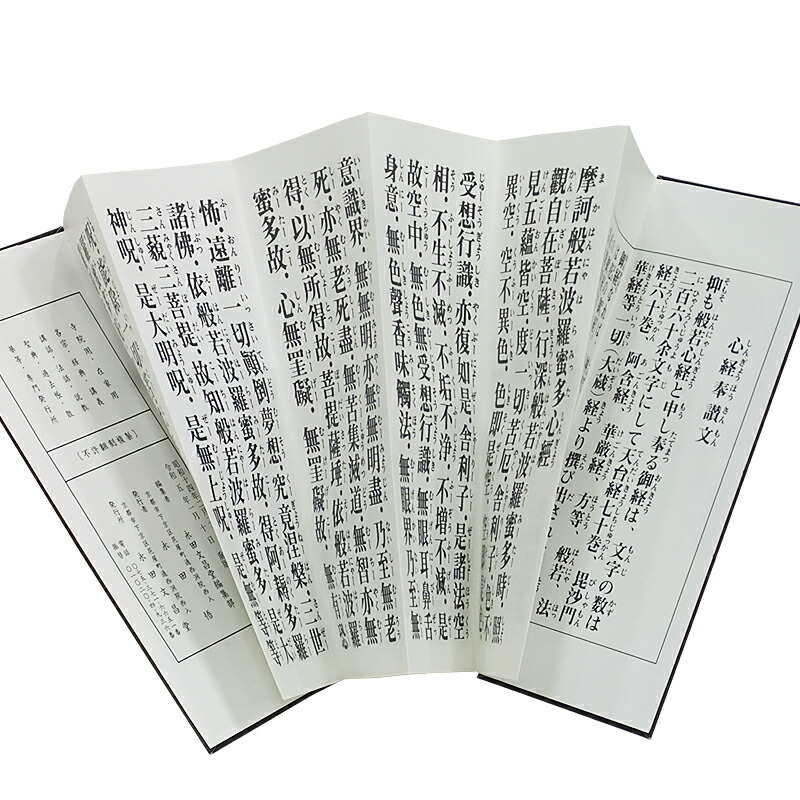 心経奉讃文
抑も般若心経と申し奉る御経は、文字の数は
二百六十余文字にして天台経七十巻、毘沙門
経六十巻、阿含経、華厳経、方等、般若、法
華経等一切(大蔵)経より撰び出され
摩訶般若波羅蜜多心經
觀自在菩薩・行深般若波羅蜜多時・照
見五蘊皆空・度一切苦厄・舎利子・色不
異空・空不異色・色即是空
受想行識・亦復如是・舎利子・是諸法空
相・不生不滅・不垢不浄・不増不減・是
故空中・無色無受想行識・無眼耳鼻舌
身意・無色聲香味觸法・無眼界・乃至無
意識界・無無明亦無無明盡・乃至無老
死・亦無老死盡・無苦集滅道・無智亦無
得・以無所得故・菩提薩埵・依般若波羅
蜜多故・心無罣礙・無罣礙故
怖・遠離一切顛倒夢想・究竟涅槃・三世
諸佛・依般若波羅蜜多故・得阿耨多羅
三藐三菩提・故知般若波羅蜜多・是大
神呪・是大明呪・是無上呪・是無等等
寺院用・在家用
各宗・経典・講義
講話・法話・説教
聖典・過去帳・数
専門発行所
(不許翻刻複製)
永田文昌堂編集部
永田文昌堂